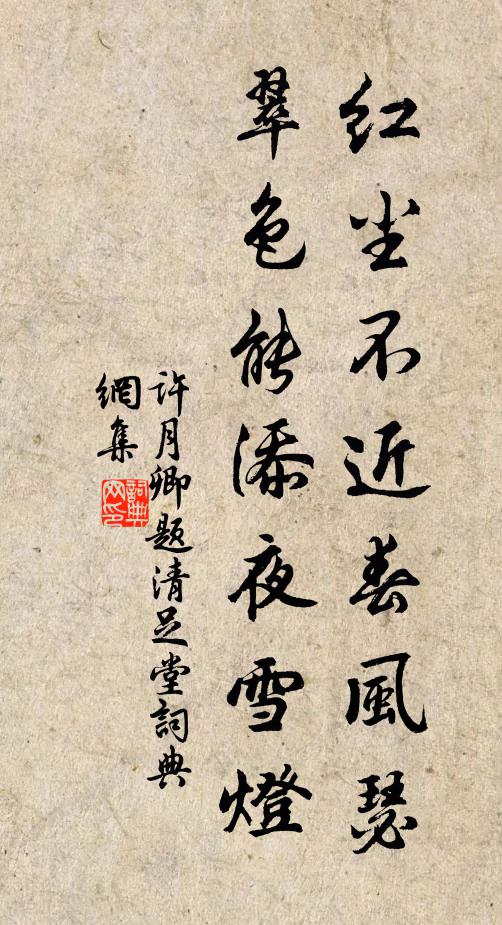 红尘不近春風瑟
翠色能添夜雪燈
许月卿题清足堂詞典
網集
詞典網印